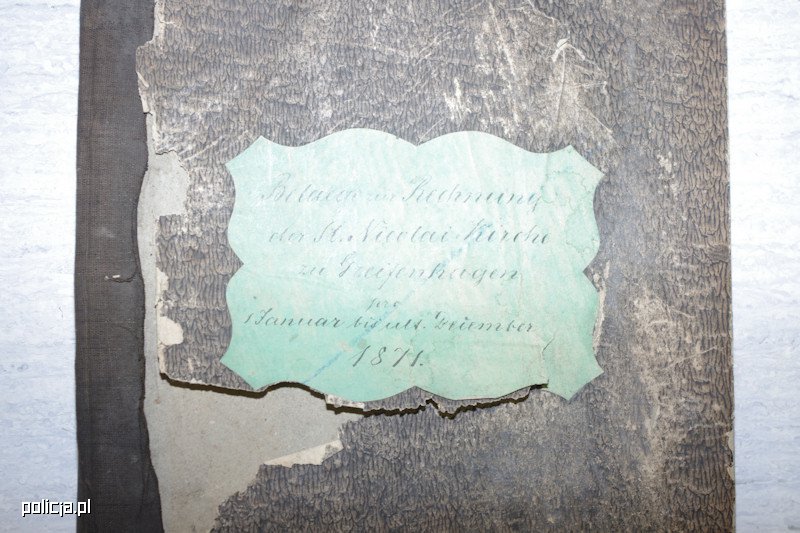 Belaege zur Rechnung
der St. Nicolai-Kirche
zu Greifenhagen
pro
1 Januar bis ult. December
1871.
policja.pl